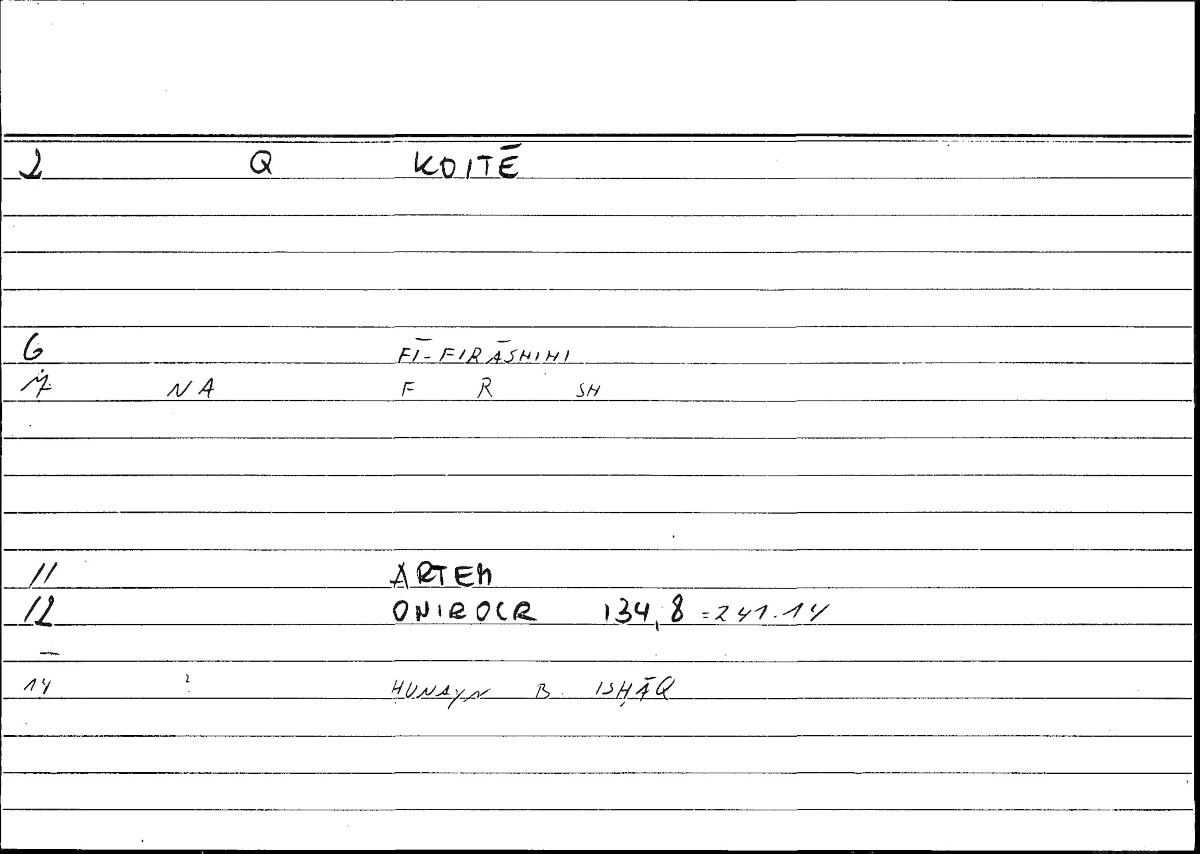 2 Q KOITĒ
6 FĪ-FIRĀSHIHI
7 NA F R SH
11 ARTEM
12 ONIROCR 134,8 = 241.14
—
14 ? ḤUNAYN B. ISḤĀQ